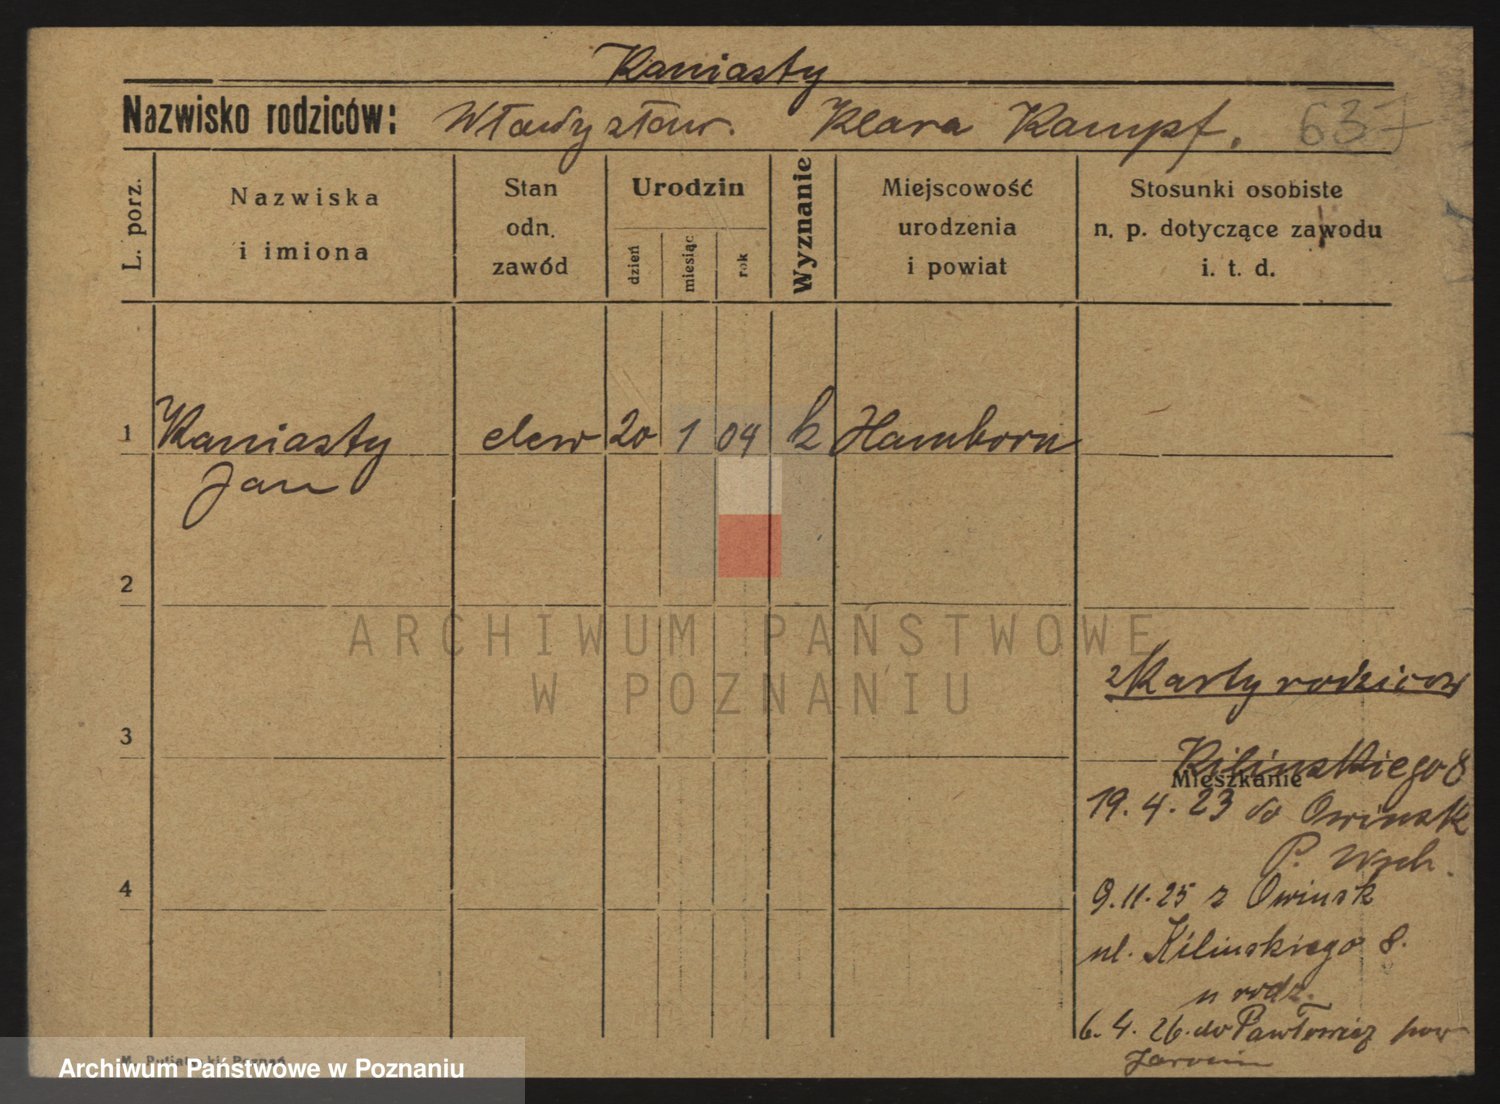 Kaniasty
Nazwisko rodziców: Władysław. Klara Kampf. 637
L. porz.
Nazwiska
i imiona
Stan
odn.
zawód
Urodzin
dzień
miesiąc
rok
Wyznanie
Miejscowość
urodzenia
i powiat
Stosunki osobiste
n. p. dotyczące zawodu
i. t. d.
1 Kaniasty elew 20 1 04 k Hamborn
Jan
2
ARCHIWUM PAŃSTWOWE
W POZNANIU
z Karty rodziców
3
Kilinskiego 8
Mieszkanie
19. 4. 23 do Owinsk
P.
4
9. 11. 25 z Owinsk
ul. Kilinskiego 8.
u rodz.
6. 4. 26. do Pawłowic pow
Jarocin
Archiwum Państwowe w Poznaniu